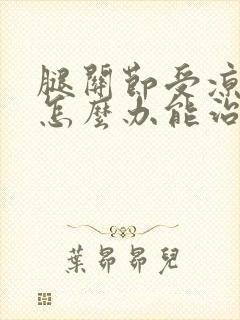 腿關節受涼
怎麼办能治
葉昴昴兒